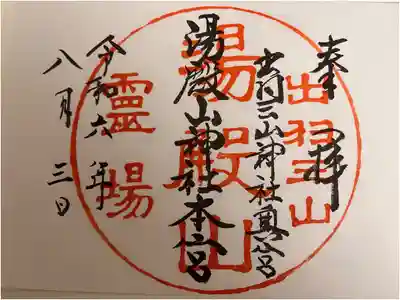 奉拝
出羽三山神社奥宮
湯殿山神社本宮
令和六年
八月三日
出羽山
湯殿山
靈場